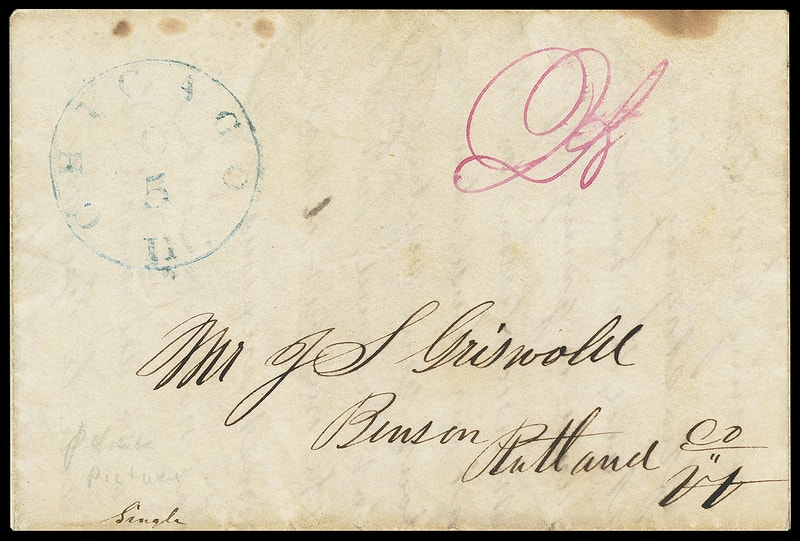 CHICAGO
5
Ill.
Mr J S Griswold
Benson
Rutland Co
Vt
Single